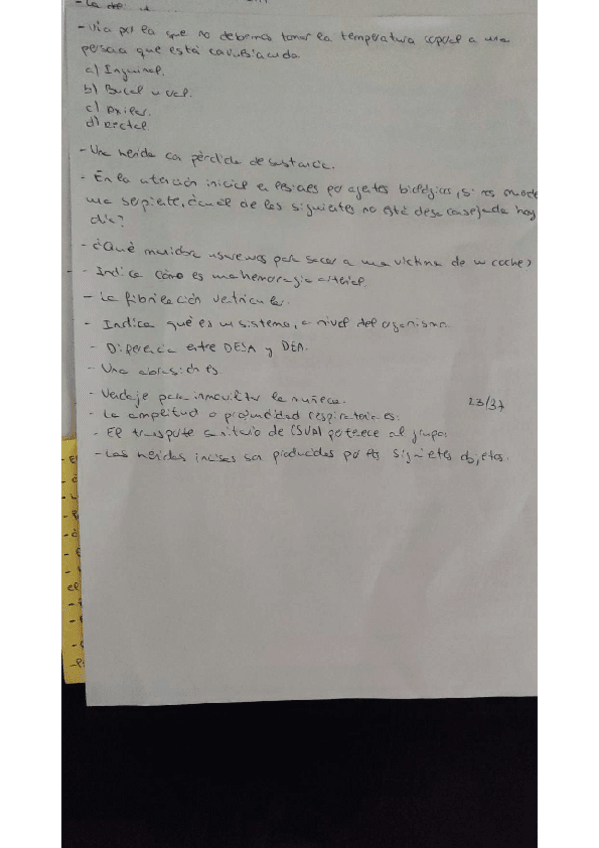 - Vía por la que no debemos tomar la temperatura corporal a una
persona que está convulsionando.
a) Inguinal.
b) Bucal u oral.
c) Axilar.
d) Rectal.
- Una herida con pérdida de sustancia.
- En la atención inicial en lesiones por agentes biológicos, si nos muerde
una serpiente, ¿cuál de las siguientes no está desaconsejada hoy
día?
- ¿Qué maniobra usaremos para sacar a una víctima de un coche?
- Indica cómo es una hemorragia arterial.
- La fibrilación ventricular.
- Indica qué es un sistema, a nivel del organismo.
- Diferencia entre DESA y DEA.
- Una ablasión es.
- Vendaje para inmovilizar la muñeca.
23/37
- La amplitud o profundidad respiratoria es:
- El transporte sanitario de (SVA) pertenece al grupo:
- Las heridas incisas son producidas por los siguientes objetos.